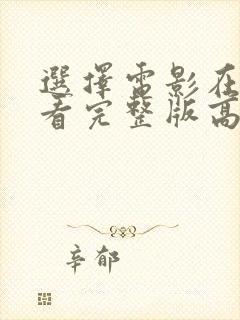 選擇電影在
看完整版高
辛郁